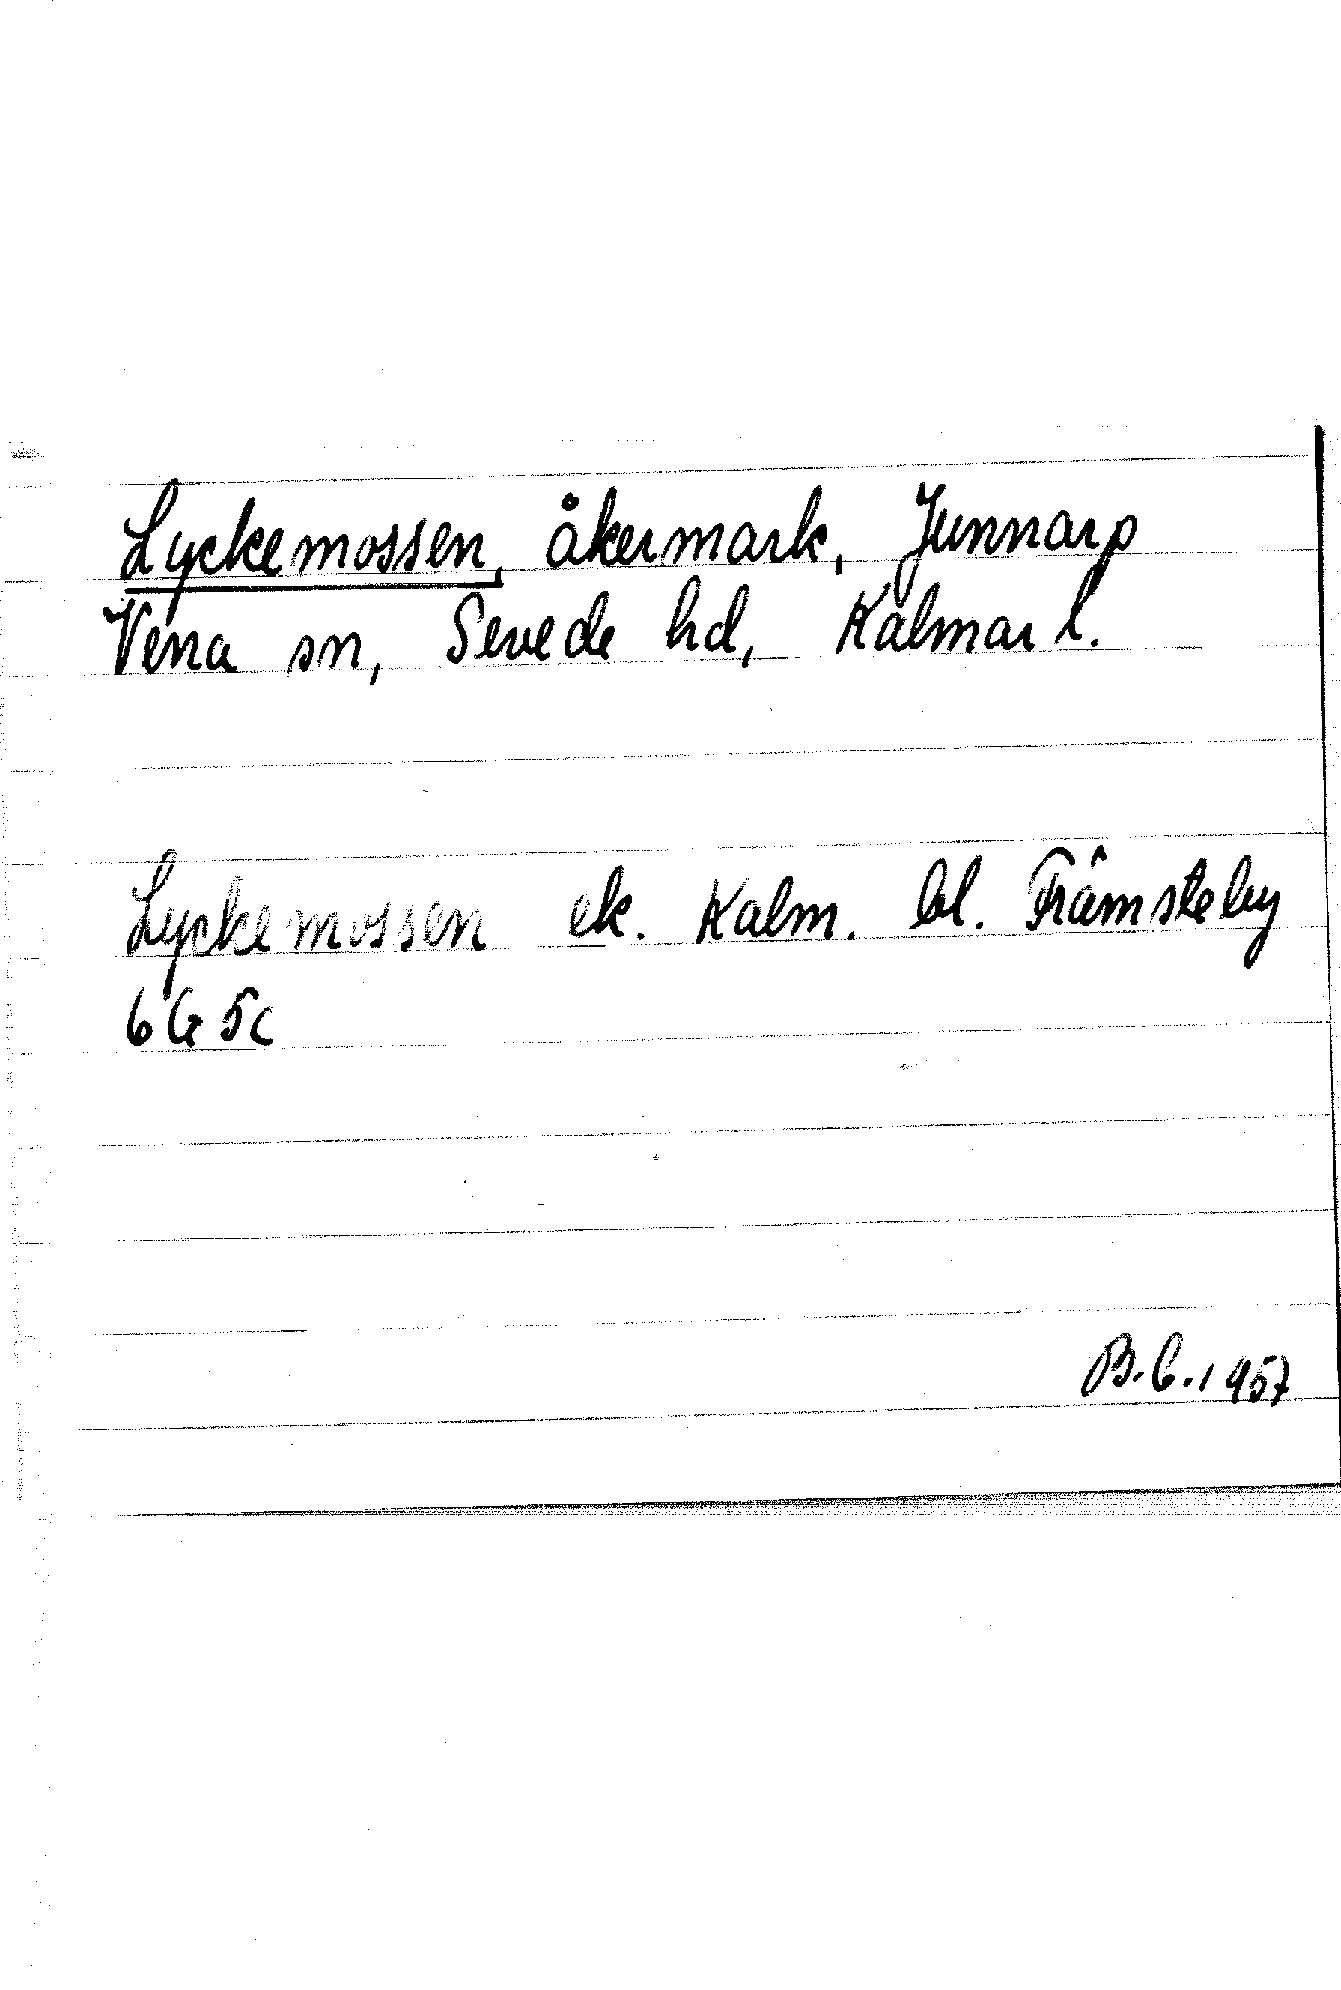 Lyckemossen, åkermark, Junnarp
Vena sn, Sevede hd, Kalmar l.
Lyckemossen ek. Kalm. bl. Främsteby
6G5c
B.C. 1957